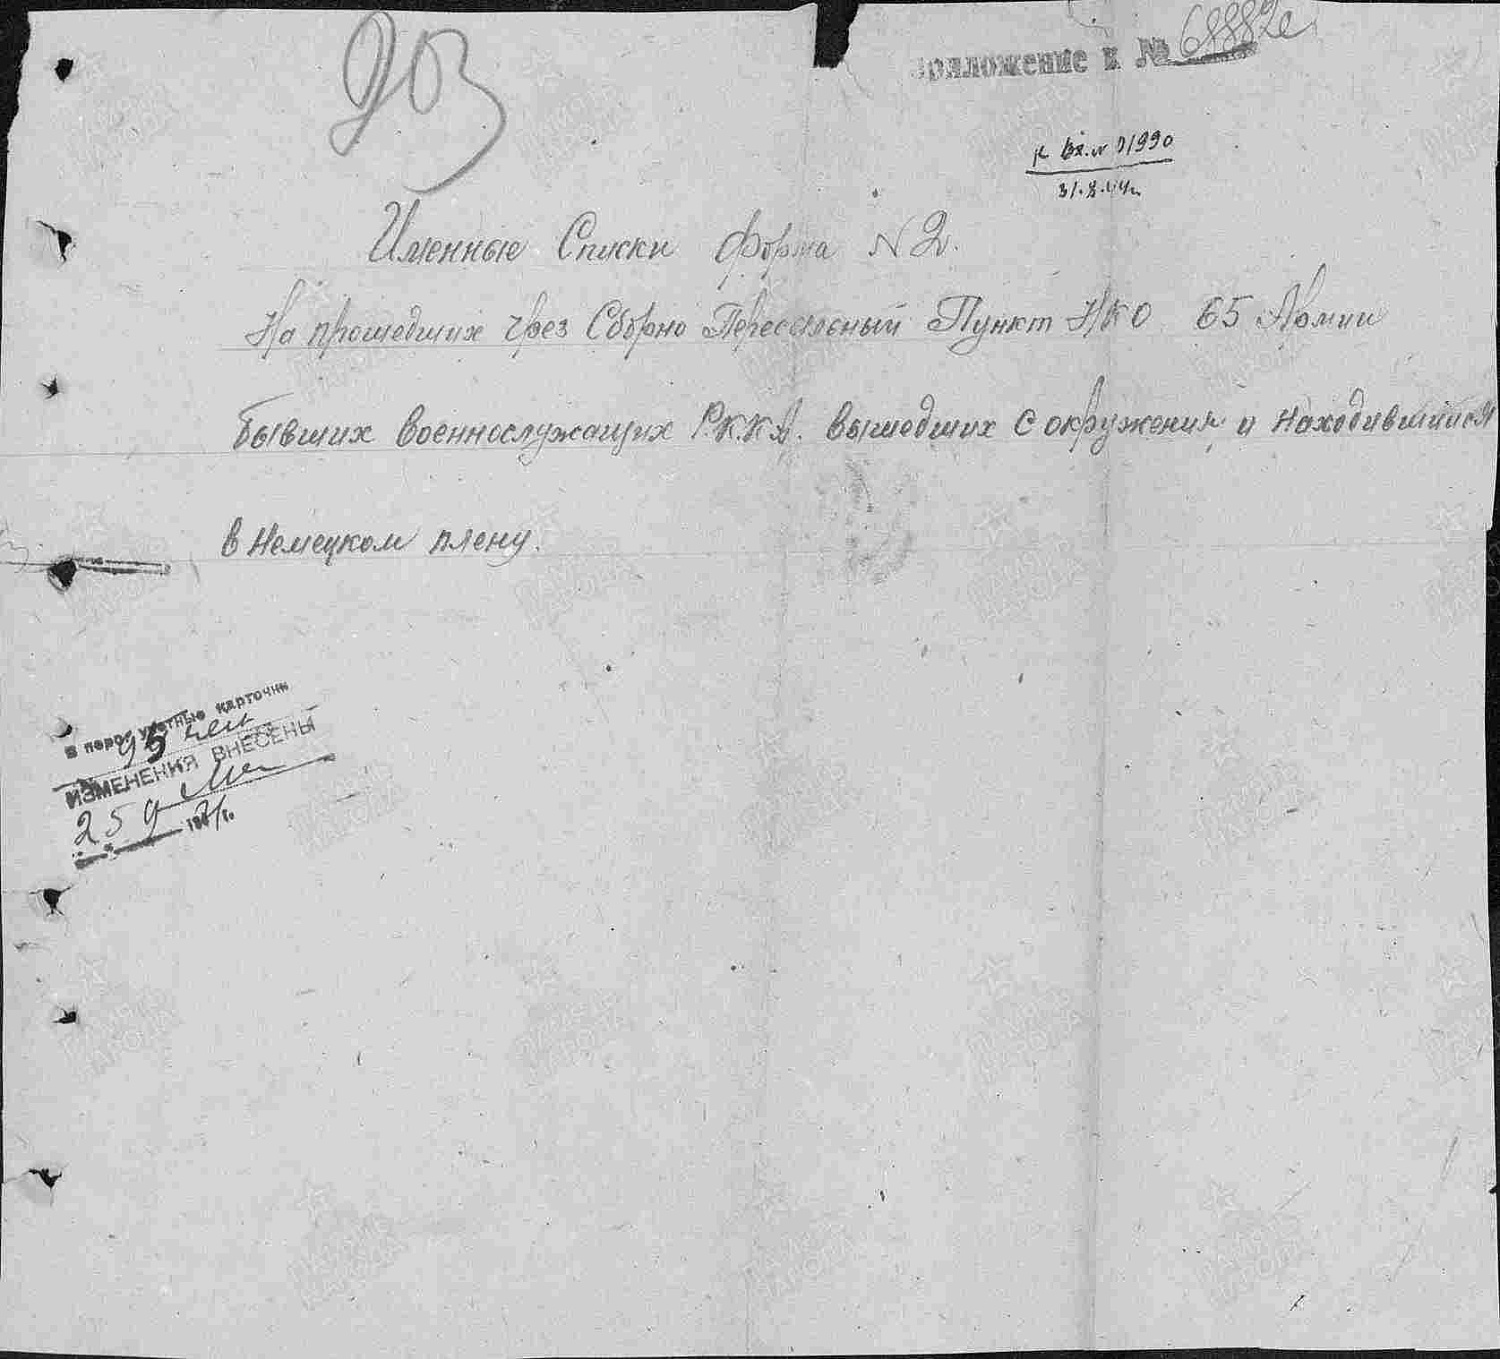 203
Приложение к № 68882с
к вх. № 01990
31.8.44г
Именные Списки форма №2.
На прошедших чрез Сборно Пересыльный Пункт НКО 65 Армии
бывших военнослужащих Р.К.К.А. вышедших с окружения и находившийися
в немецком плену.
В персучетные карточки
95 чел
ИЗМЕНЕНИЯ ВНЕСЕНЫ
25 9
194 г.
ПАМЯТЬ НАРОДА